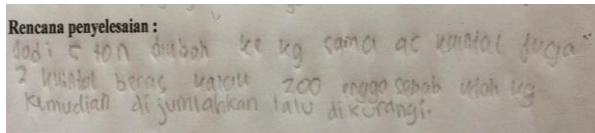 Rencana penyelesaian :
Jadi 5 ton diubah ke kg sama ac kuintal juga
2 kuintal beras kalau 200 enggo sebab udah kg
kemudian di jumlahkan lalu dikurangi.